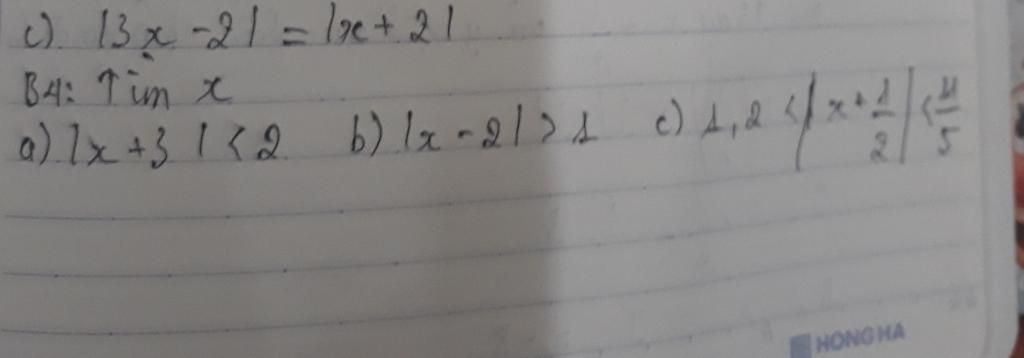 c) |3x - 2| = |x + 2|
B4: Tìm x
a) |x + 3| < 2 b) |x - 2| > 1 c) 1,2 < |x + 1/2| < 11/5
HONG HA